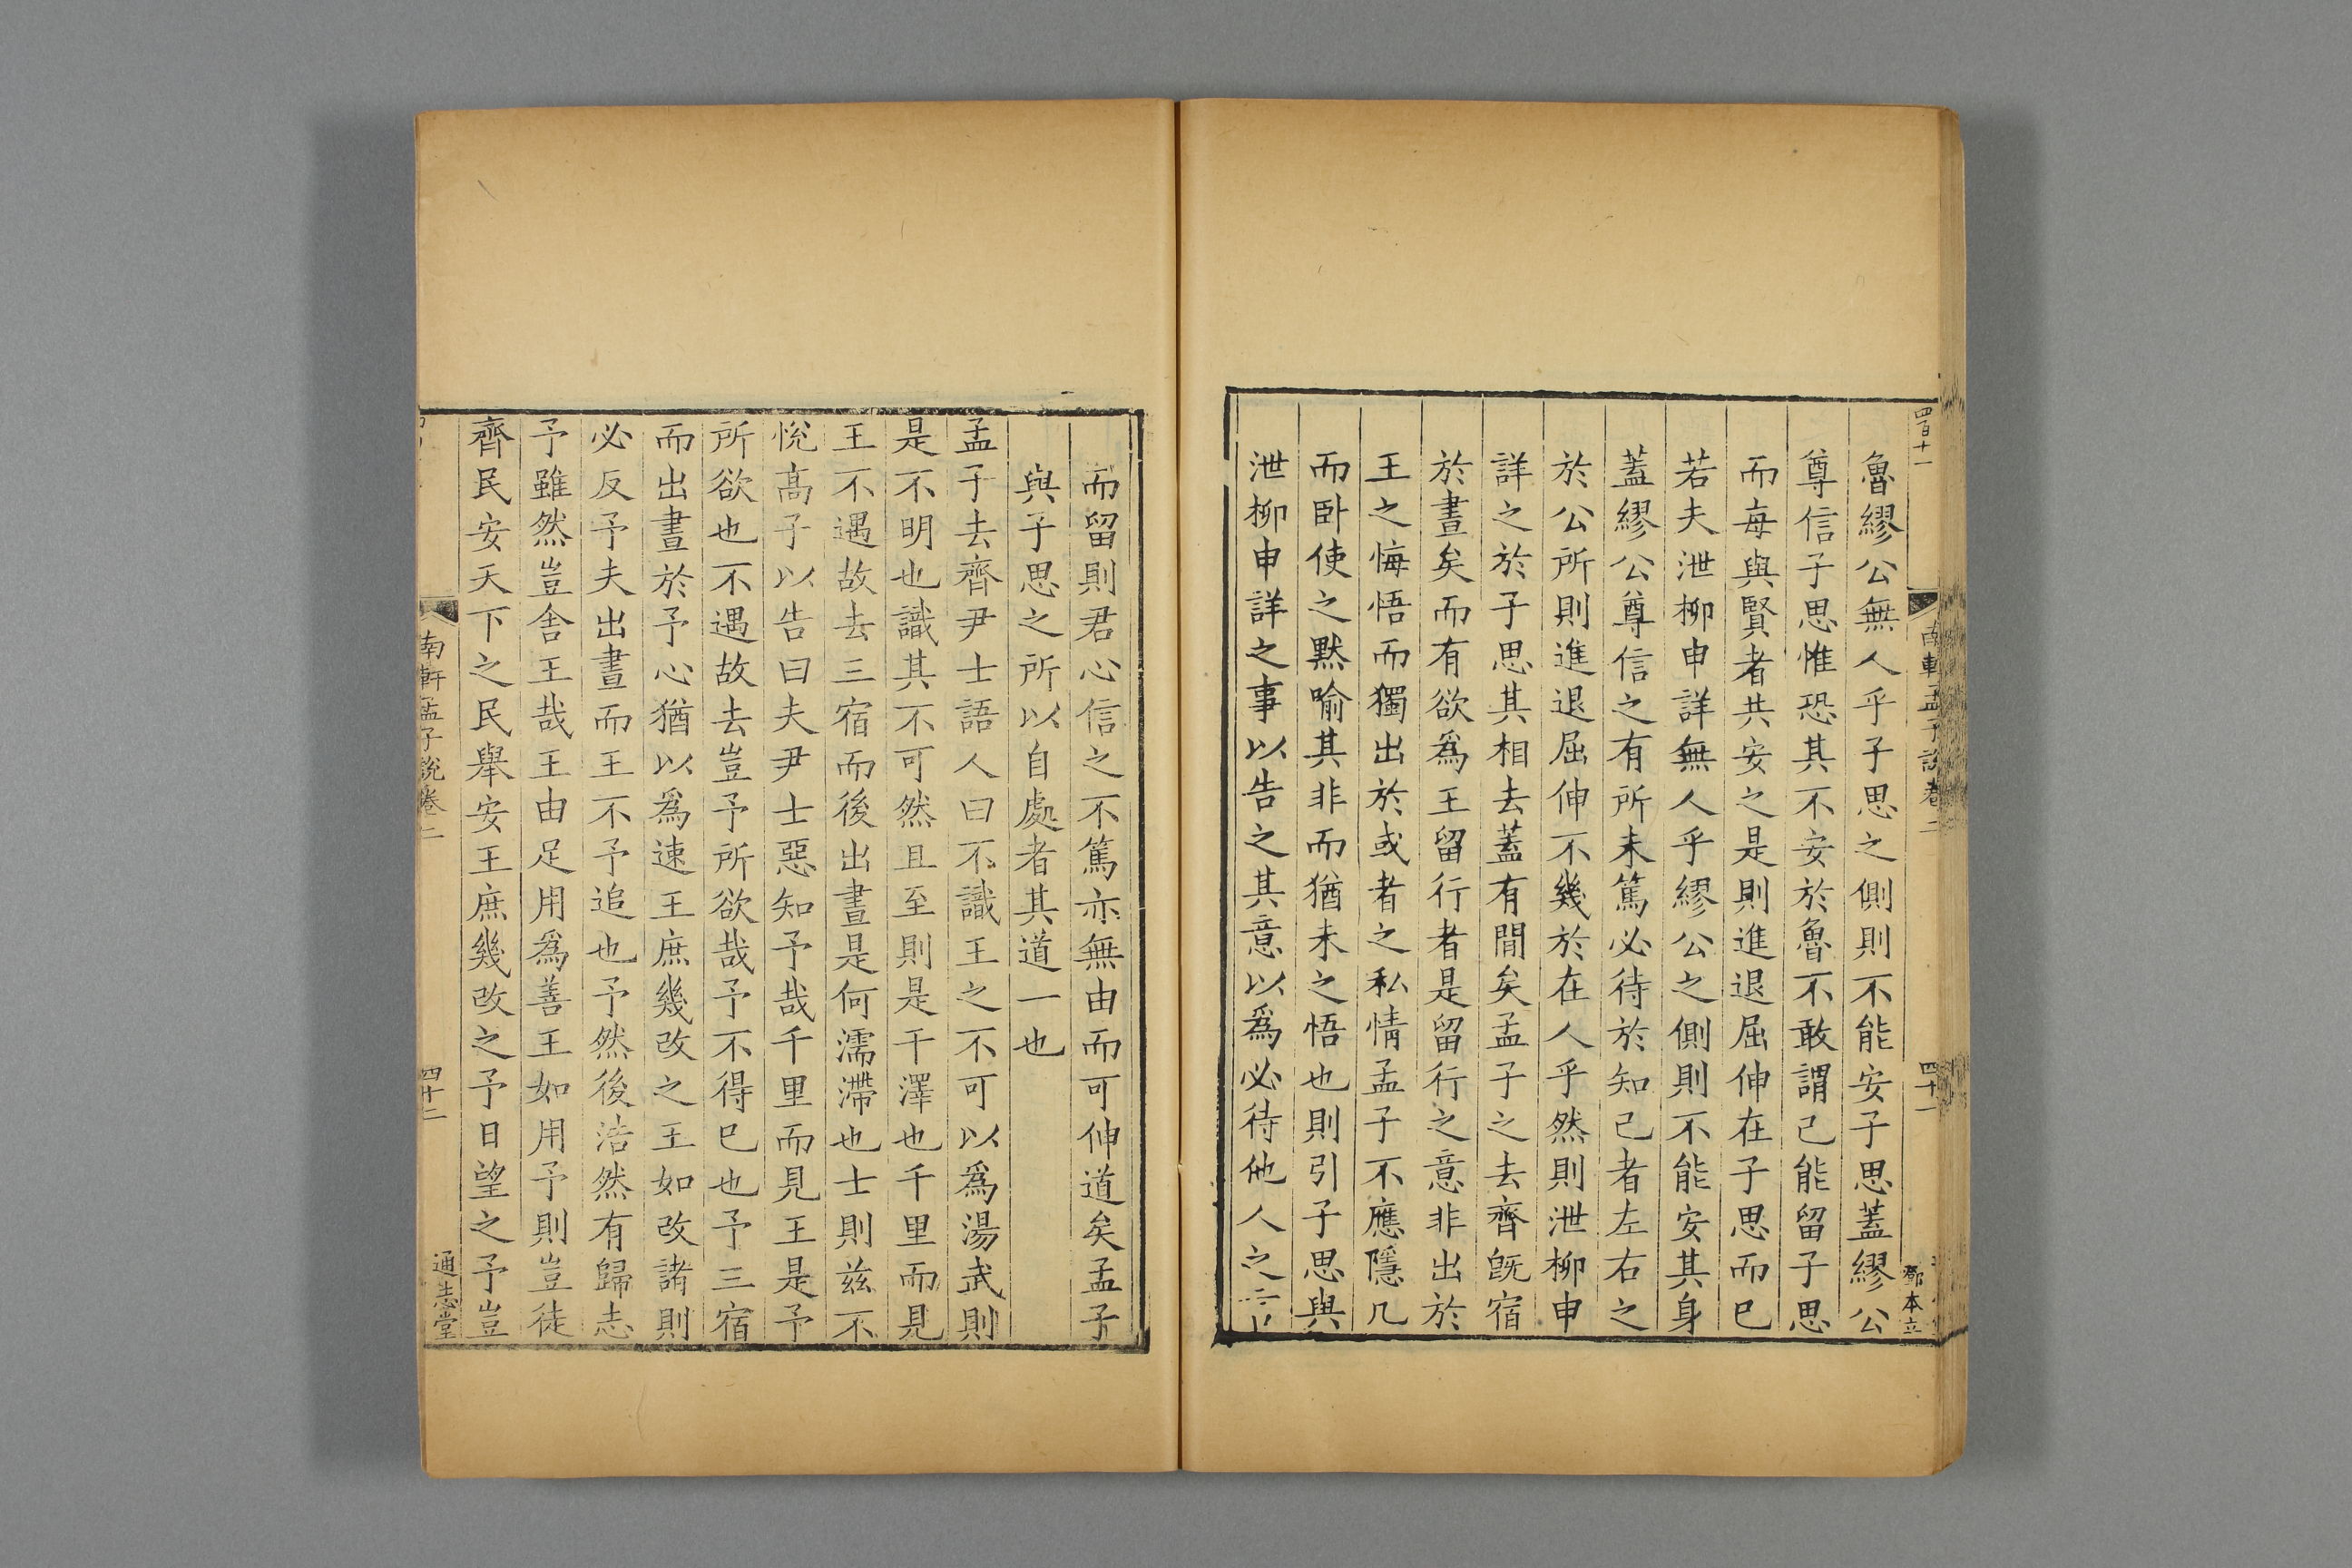 四百十一
南軒孟子說卷二
四十一
鄧本立
魯繆公無人乎子思之側則不能安子思蓋繆公
尊信子思惟恐其不安於魯不敢謂己能留子思
而每與賢者共安之是則進退屈伸在子思而巳
若夫泄柳申詳無人乎繆公之側則不能安其身
蓋繆公尊信之有所未篤必待於知己者左右之
於公所則進退屈伸不幾於在人乎然則泄柳申
詳之於子思其相去蓋有閒矣孟子之去齊旣宿
於晝矣而有欲爲王留行者是留行之意非出於
王之悔悟而獨出於或者之私情孟子不應隱几
而卧使之黙喻其非而猶未之悟也則引子思與
泄柳申詳之事以告之其意以爲必待他人之
而留則君心信之不篤亦無由而可伸道矣孟子
與子思之所以自處者其道一也
孟子去齊尹士語人曰不識王之不可以爲湯武則
是不明也識其不可然且至則是干澤也千里而見
王不遇故去三宿而後出晝是何濡滯也士則兹不
悅高子以告曰夫尹士惡知予哉千里而見王是予
所欲也不遇故去豈予所欲哉予不得巳也予三宿
而出晝於予心猶以爲速王庶幾改之王如改諸則
必反予夫出晝而王不予追也予然後浩然有歸志
予雖然豈舍王哉王由足用爲善王如用予則豈徒
齊民安天下之民舉安王庶幾改之予日望之予豈
南軒孟子說卷二
四十二
通志堂